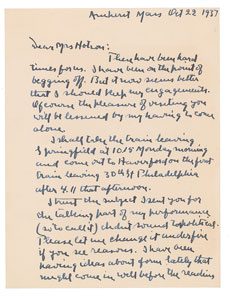 Amherst Mass Oct 22 1937
Dear Mrs
There have been hard
times for us. I have been on the point of
begging off. But it now seems better
that I should keep my engagements.
Of course the pleasure of visiting you
will be lessened by my having to come
alone.
I shall take the train leaving
Springfield at 10:15 Monday morning
and come out to Haverford on the first
train leaving 30th St Philadelphia
after 4.11 that afternoon.
I trust the subject I sent you for
the talking part of my performance
(so to call it) didn't sound too political.
Please let me change it
if you see reasons. I have been
having ideas about form lately that
might come in well before the reading